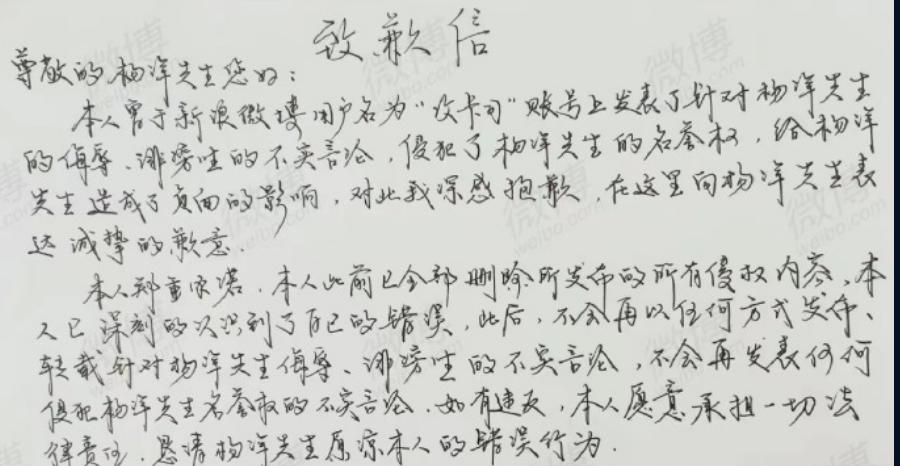 致歉信
尊敬的杨洋先生您好：
本人曾于新浪微博用户名为“改卡司”账号上发表了针对杨洋先生
的侮辱、诽谤性的不实言论，侵犯了杨洋先生的名誉权，给杨洋
先生造成了负面的影响，对此我深感抱歉，在这里向杨洋先生表
达诚挚的歉意．
本人郑重承诺，本人此前已全部删除所发布的所有侵权内容、本
人已深刻的认识到了自己的错误，此后，不会再以任何方式发布、
转载针对杨洋先生侮辱、诽谤性的不实言论，不会再发表任何
侵犯杨洋先生名誉权的不实言论．如有违反，本人愿意承担一切法
律责任．恳请杨洋先生原谅本人的错误行为．